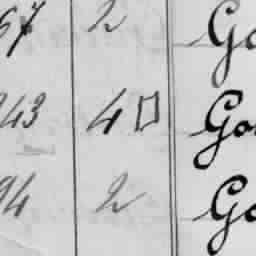 67 2 Go
243 4▯ Go
94 2 Go